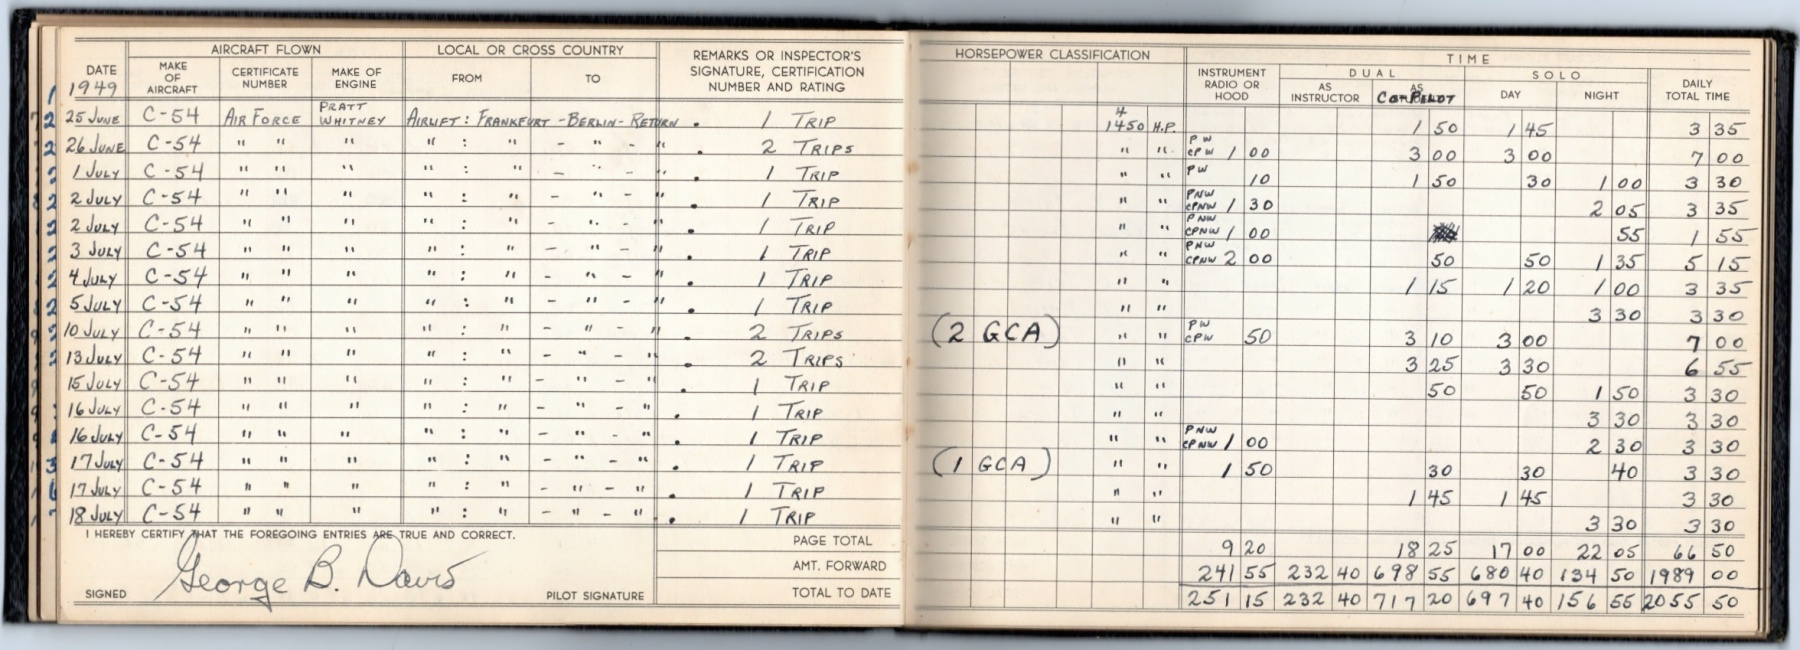 AIRCRAFT FLOWN LOCAL OR CROSS COUNTRY REMARKS OR INSPECTOR'S SIGNATURE, CERTIFICATION NUMBER AND RATING HORSEPOWER CLASSIFICATION TIME
DATE 1949 MAKE OF AIRCRAFT CERTIFICATE NUMBER MAKE OF ENGINE FROM TO INSTRUMENT RADIO OR HOOD DUAL AS INSTRUCTOR AS CO-PILOT SOLO DAY NIGHT DAILY TOTAL TIME
25 JUNE C-54 AIR FORCE PRATT WHITNEY AIRLIFT: FRANKFURT - BERLIN - RETURN . 1 TRIP 4 1450 H.P. 1 50 1 45 3 35
26 JUNE C-54 " " " " : " - " - " . 2 TRIPS " " PW CPW 1 00 3 00 3 00 7 00
1 JULY C-54 " " " " : " - " - " . 1 TRIP " " PW 10 1 50 30 1 00 3 30
2 JULY C-54 " " " " : " - " - " . 1 TRIP " " PNW CPNW 1 30 2 05 3 35
2 JULY C-54 " " " " : " - " - " . 1 TRIP " " PNW CPNW 1 00 55 1 55
3 JULY C-54 " " " " : " - " - " . 1 TRIP " " PNW CPNW 2 00 50 50 1 35 5 15
4 JULY C-54 " " " " : " - " - " . 1 TRIP " " 1 15 1 20 1 00 3 35
5 JULY C-54 " " " " : " - " - " . 1 TRIP " " 3 30 3 30
10 JULY C-54 " " " " : " - " - " . 2 TRIPS (2 GCA) " " PW CPW 50 3 10 3 00 7 00
13 JULY C-54 " " " " : " - " - " . 2 TRIPS " " 3 25 3 30 6 55
15 JULY C-54 " " " " : " - " - " . 1 TRIP " " 50 50 1 50 3 30
16 JULY C-54 " " " " : " - " - " . 1 TRIP " " 3 30 3 30
16 JULY C-54 " " " " : " - " - " . 1 TRIP " " PNW CPNW 1 00 2 30 3 30
17 JULY C-54 " " " " : " - " - " . 1 TRIP (1 GCA) " " 1 50 30 30 40 3 30
17 JULY C-54 " " " " : " - " - " . 1 TRIP " " 1 45 1 45 3 30
18 JULY C-54 " " " " : " - " - " . 1 TRIP " " 3 30 3 30
I HEREBY CERTIFY THAT THE FOREGOING ENTRIES ARE TRUE AND CORRECT.
PAGE TOTAL 9 20 18 25 17 00 22 05 66 50
AMT. FORWARD 241 55 232 40 698 55 680 40 134 50 1989 00
SIGNED George B. Davis PILOT SIGNATURE TOTAL TO DATE 251 15 232 40 717 20 697 40 156 55 2055 50